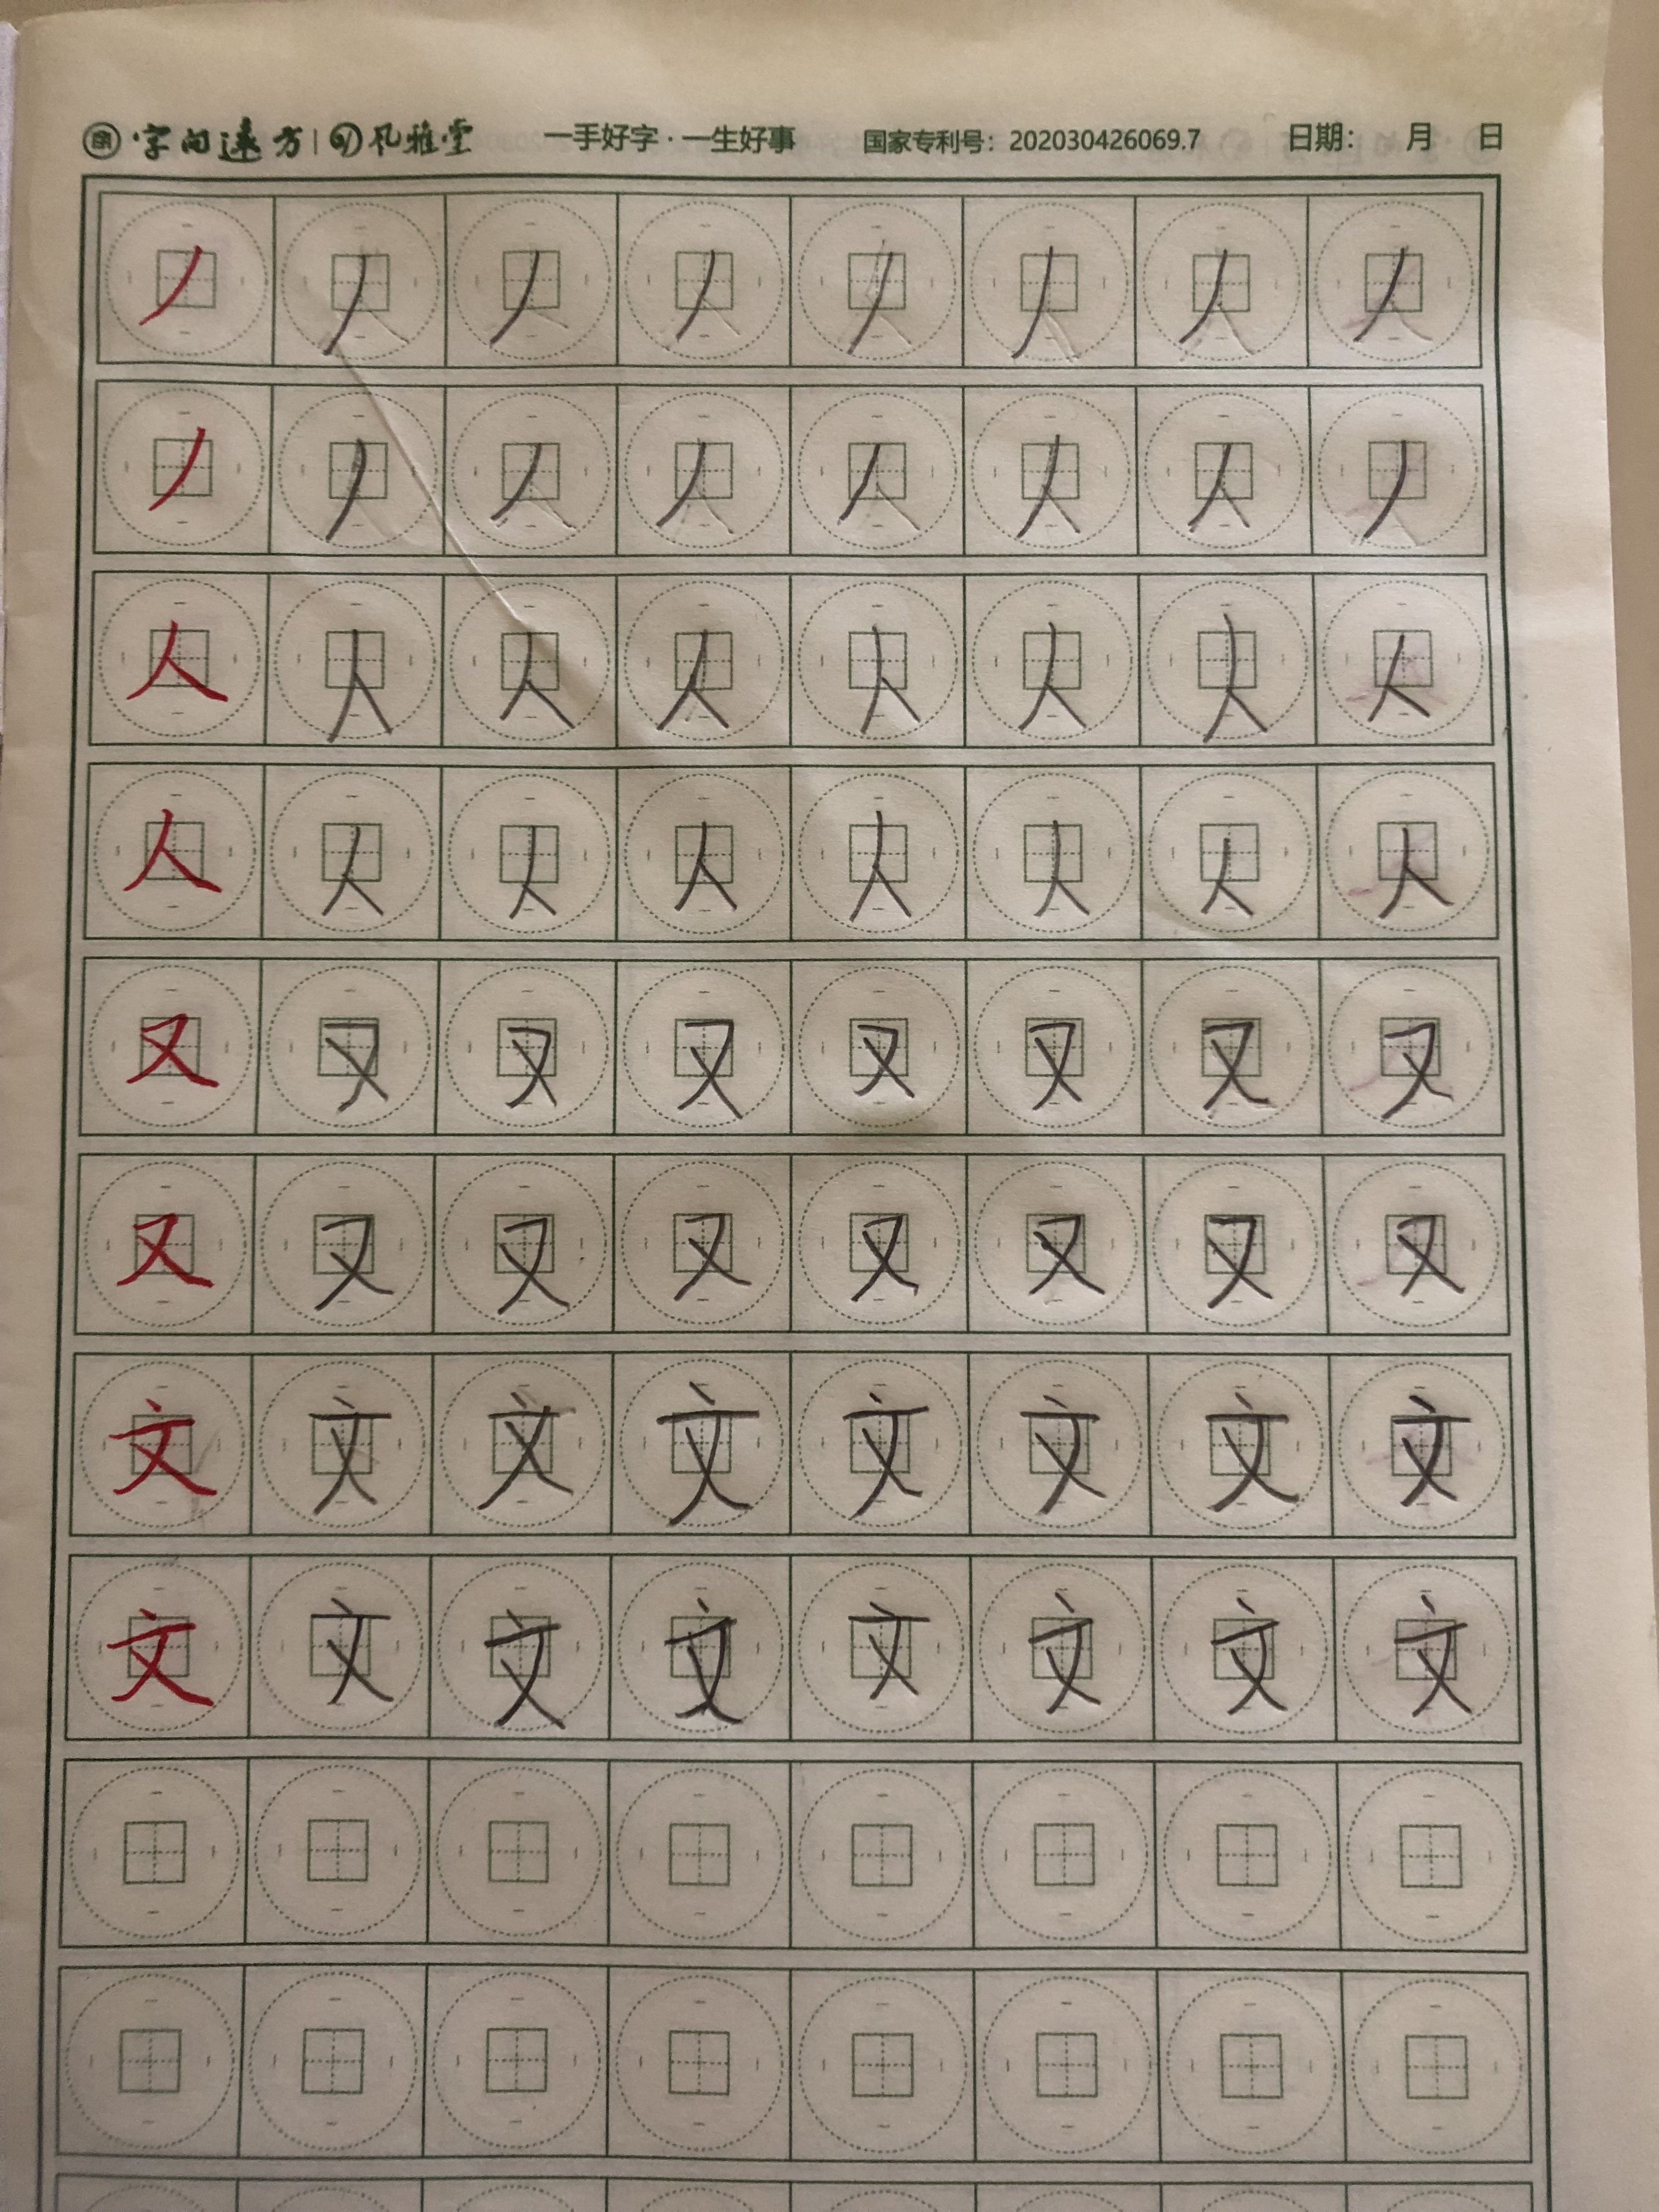 字向远方 | 风雅堂 一手好字·一生好事 国家专利号：202030426069.7 日期： 月 日
丿 丿 丿 丿 丿 丿 丿 丿
丿 丿 丿 丿 丿 丿 丿 丿
人 人 人 人 人 人 人 人
人 人 人 人 人 人 人 人
又 又 又 又 又 又 又 又
又 又 又 又 又 又 又 又
文 文 文 文 文 文 文 文
文 文 文 文 文 文 文 文